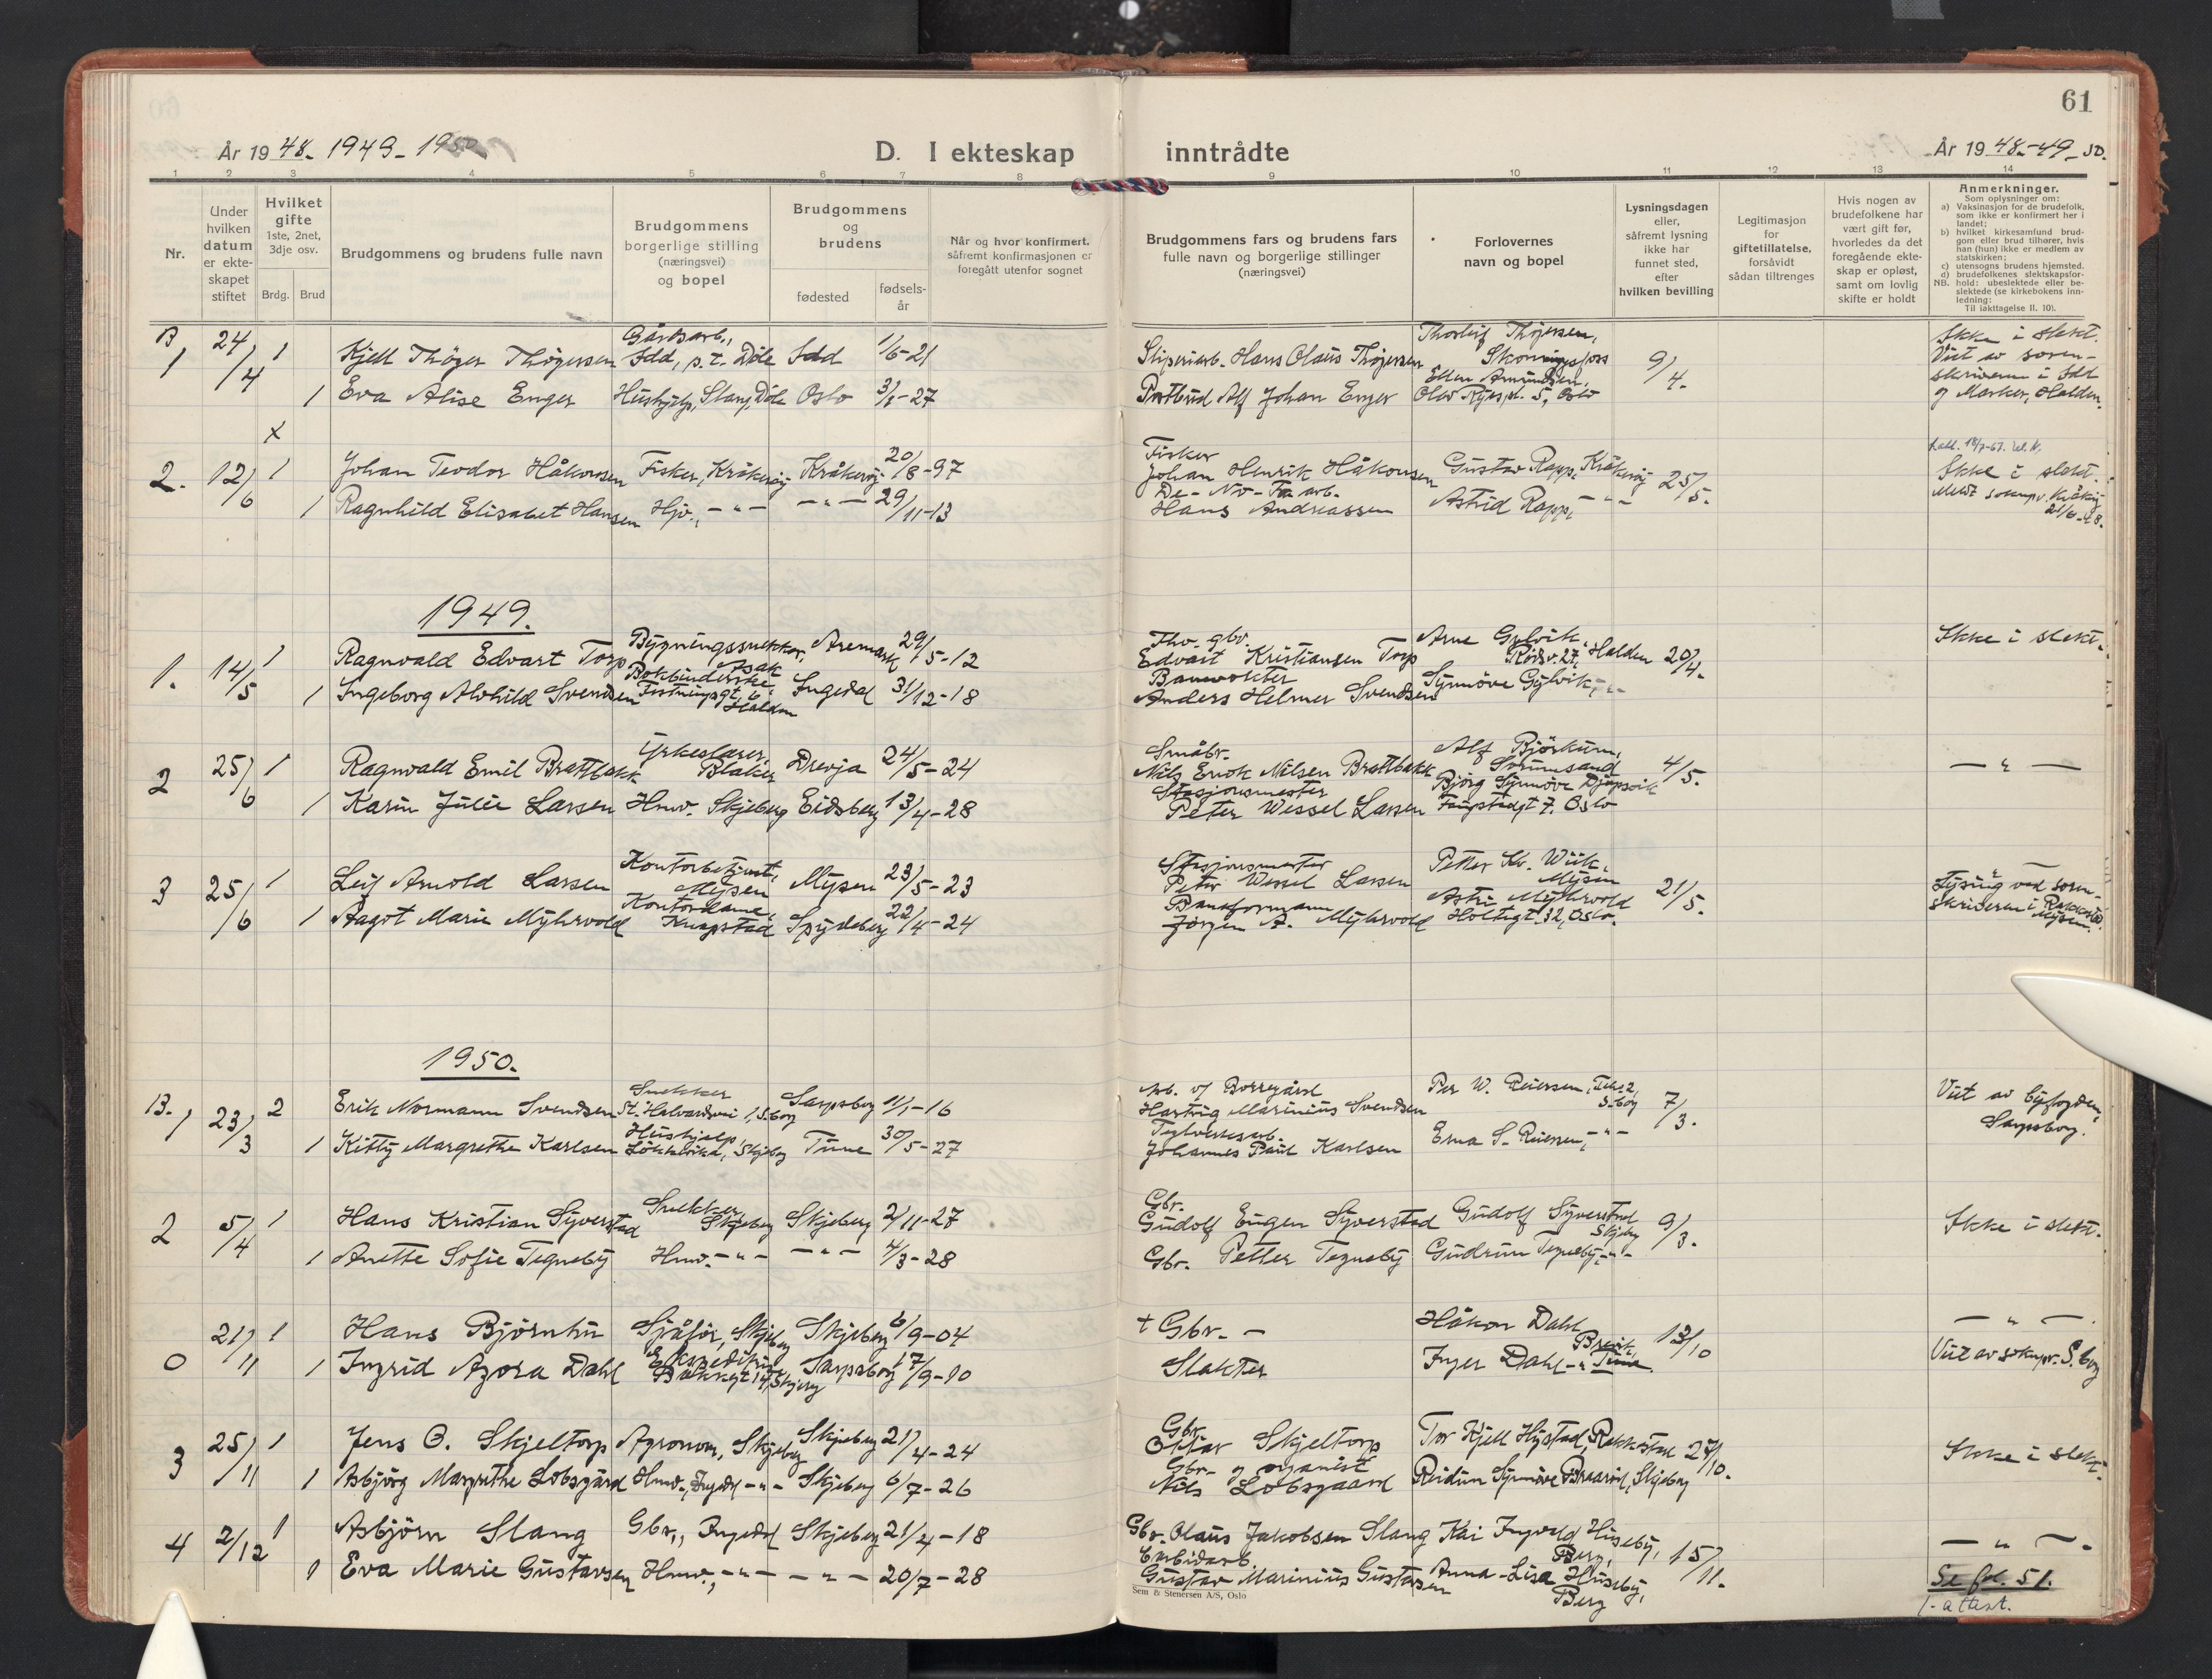 61
År 1948. 1949- 1950
D. I ekteskap inntrådte
År 1948.-49-50.
1 2 3 4 5 6 7 8 9 10 11 12 13 14
Nr.
Under hvilken datum er ekteskapet stiftet
Hvilket gifte 1ste, 2net, 3dje osv.
Brdg. Brud
Brudgommens og brudens fulle navn
Brudgommens borgerlige stilling (næringsvei) og bopel
Brudgommens og brudens
fødested
fødselsår
Når og hvor konfirmert, såfremt konfirmasjonen er foregått utenfor sognet
Brudgommens fars og brudens fars fulle navn og borgerlige stillinger (næringsvei)
Forlovernes navn og bopel
Lysningsdagen eller, såfremt lysning ikke har funnet sted, efter hvilken bevilling
Legitimasjon for giftetillatelse, forsåvidt sådan tiltrenges
Hvis nogen av brudefolkene har vært gift før, hvorledes da det foregående ekteskap er opløst, samt om lovlig skifte er holdt
Anmerkninger.
Som oplysninger om:
a) Vaksinasjon for de brudefolk, som ikke er konfirmert her i landet;
b) hvilket kirkesamfund brudgom eller brud tilhører, hvis han (hun) ikke er medlem av statskirken;
c) utensogns brudens hjemsted.
d) brudefolkenes slektskapsforhold: ubeslektede eller beslektede (se kirkebokens innledning:
NB. Til iakttagelse II. 10).
B 1 24/4 1 Kjell Thöger Thögersen Gårdsarb., Idd, p.t. Døle Idd 1/6-21 Sliperiarb. Hans Olaus Thögersen Thorleif Thögersen, Skonningsfoss 9/4. Ikke i slekt. Viet av sorenskriveren i Idd og Marker, Halden.
1 Eva Alise Enger Hushjelp, Slang, Døle Oslo 3/1-27 Postbud Alf Johan Enger Ellen Amundsen, Olav Ryes pl. 5, Oslo
x
2. 12/6 1 Johan Teodor Håkonsen Fisker, Kråkeröy Kråkeröy 20/8-97 Fisker Johan Henrik Håkonsen Gustav Rapp, Kråkeröy 25/5. Ikke i slekt.
1 Ragnhild Elisabet Hansen Hjv., -"- -"- 29/11-13 De-No-Fa arb. Hans Andreassen Astrid Rapp, -"- Meldt soknepr. Kråkøy 21/6-48.
1949.
1. 14/5 1 Ragnvald Edvart Torp Bygningssnekker, Asak Aremark 29/5-12 Fhv. gbr. Edvart Kristiansen Torp Arne Gylvik, Rødsv. 27, Halden 20/4. Ikke i slekt.
1 Ingeborg Alvhild Svendsen Bokbinderske, Halden Ingedal 31/12-18 Banevokter Anders Helmer Svendsen Synnöve Gylvik, -"-
2 25/6 1 Ragnvald Emil Brattbakk Yrkeslærer, Blaker Drevja 24/5-24 Småbr. Nils Enok Nilsen Brattbakk Alf Björkum, Sörumsand 4/5. -"-
1 Karin Julie Larsen Hmv. Skjeberg Eidsberg 13/4-28 Stasjonsmester Peter Wessel Larsen Björg Synnöve Djupsvik 7. Oslo
3 25/6 1 Leif Arnold Larsen Kontorbetjent, Mysen Mysen 23/5-23 Stasjonsmester Peter Wessel Larsen Petter Kr. Wiik, Mysen 21/5. -"- Lysing ved sorenskriveren i Rakkestad, Mysen.
1 Aagot Marie Myhrvold Kontordame, Knapstad Spydeberg 22/4-24 Baneformann Jørgen A. Myhrvold Astri Myhrvold Holtegt. 32, Oslo.
1950.
B. 1 23/3 2 Erik Normann Svendsen Snekker St. Halvardsvei 1, S.borg Sarpsborg 11/1-16 Arb. v/ Borregård Hartvig Marinius Svendsen Per W. Reiersen, S.borg 7/3. Viet av byfogden, Sarpsborg.
1 Kitty Margrethe Karlsen Hushjelp, Lökkevika, Skjeberg Tune 30/5-27 Teglverksarb. Johannes Paul Karlsen Erna S. Reiersen, -"-
2 5/4 1 Hans Kristian Syverstad Snekker, Skjeberg Skjeberg 2/11-27 Gbr. Gudolf Eugen Syverstad Gudolf Syverstad Skjeberg 9/3. Ikke i slekt.
1 Anette Sofie Tegneby Hmv. -"- -"- 4/3-28 Gbr. Petter Tegneby Gudrun Tegneby, -"-
0 21/11 1 Hans Björntu Sjåför, Skjeberg Skjeberg 6/9-04 + Gbr. - Håkon Dahl Brevik, Tune 13/10 -"-.
1 Ingrid Azora Dahl Ekspeditrise Bakkegt. 14, Skjeberg Sarpsborg 17/9-10 Slakter Inger Dahl -"- Viet av soknepr. S.borg
3 25/11 1 Jens O. Skjeltorp Agronom, Skjeberg Skjeberg 21/4-24 Gbr. Ottar Skjeltorp Tor Kjell Hystad, Rakkestad 27/10. Ikke i slekt.
1 Asbjörg Margrethe Lobsgård Hmv., Ingedal -"- Skjeberg 6/7-26 Gbr. og organist Nils Lobsgaard Reidun Synnöve Braaröd, Skjeberg
4 2/12 1 Asbjörn Slang Gbr., Ingedal Skjeberg 21/4-18 Gbr. Olaus Jakobsen Slang Kai Ingvald Huseby, Berg, 15/11. -"-.
1 Eva Marie Gustavsen Hmv., -"- -"- 20/7-28 Gustav Marinius Gustavsen Anna-Lisa Huseby, Berg Se fol. 51.
1-attest.
Sem & Stenersen A/S, Oslo